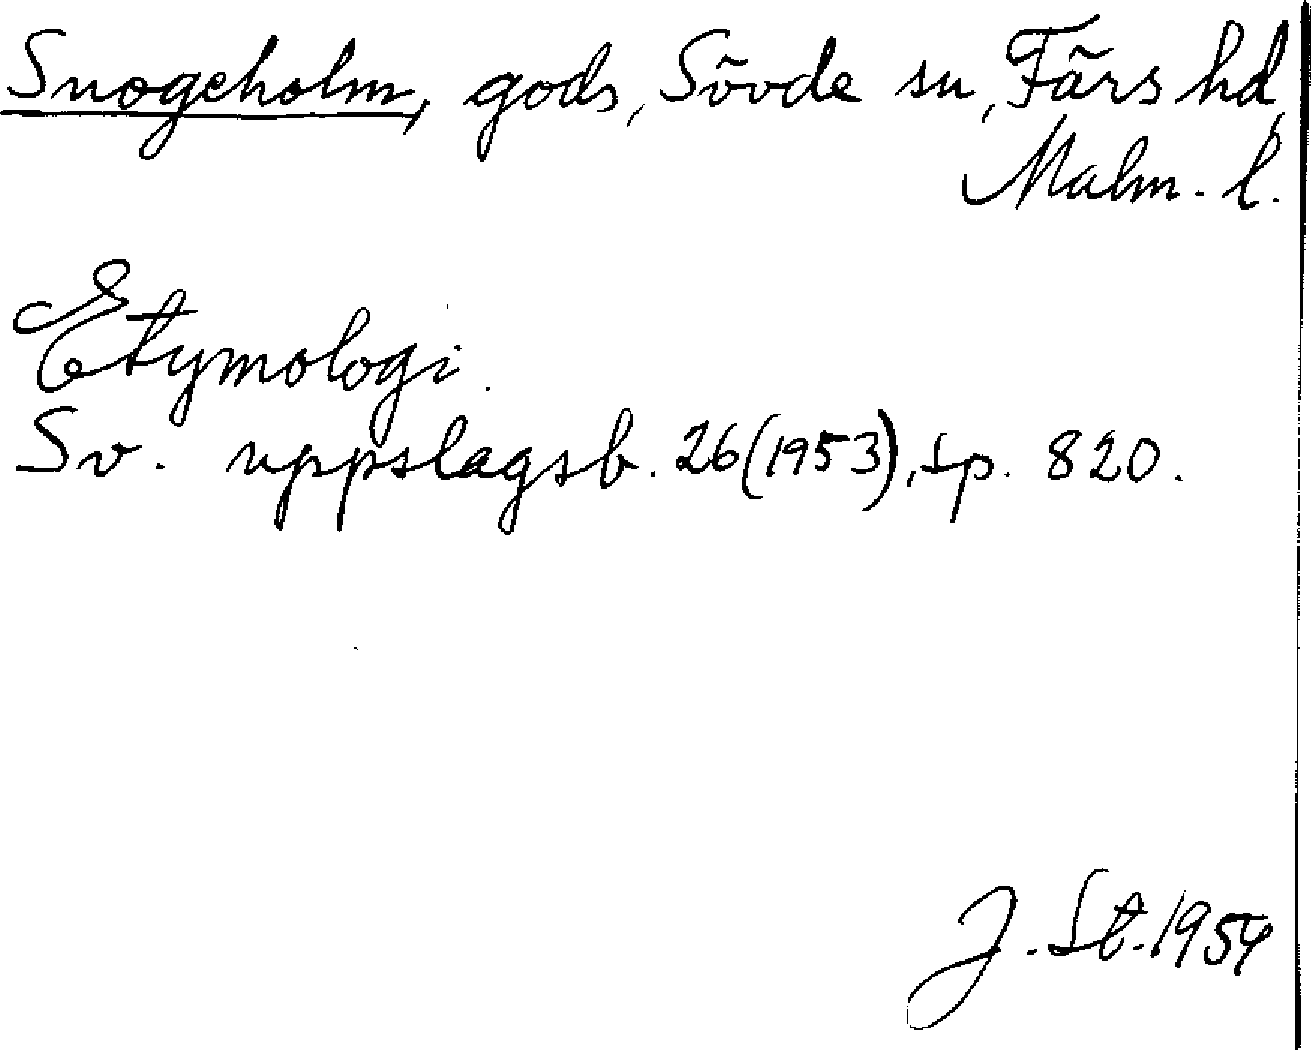 Snogeholm, gods, Sövde sn, Färs hd,
Malm. l.
Etymologi.
Sv. uppslagsb. 26(1953), sp. 820.
J. St. 1954